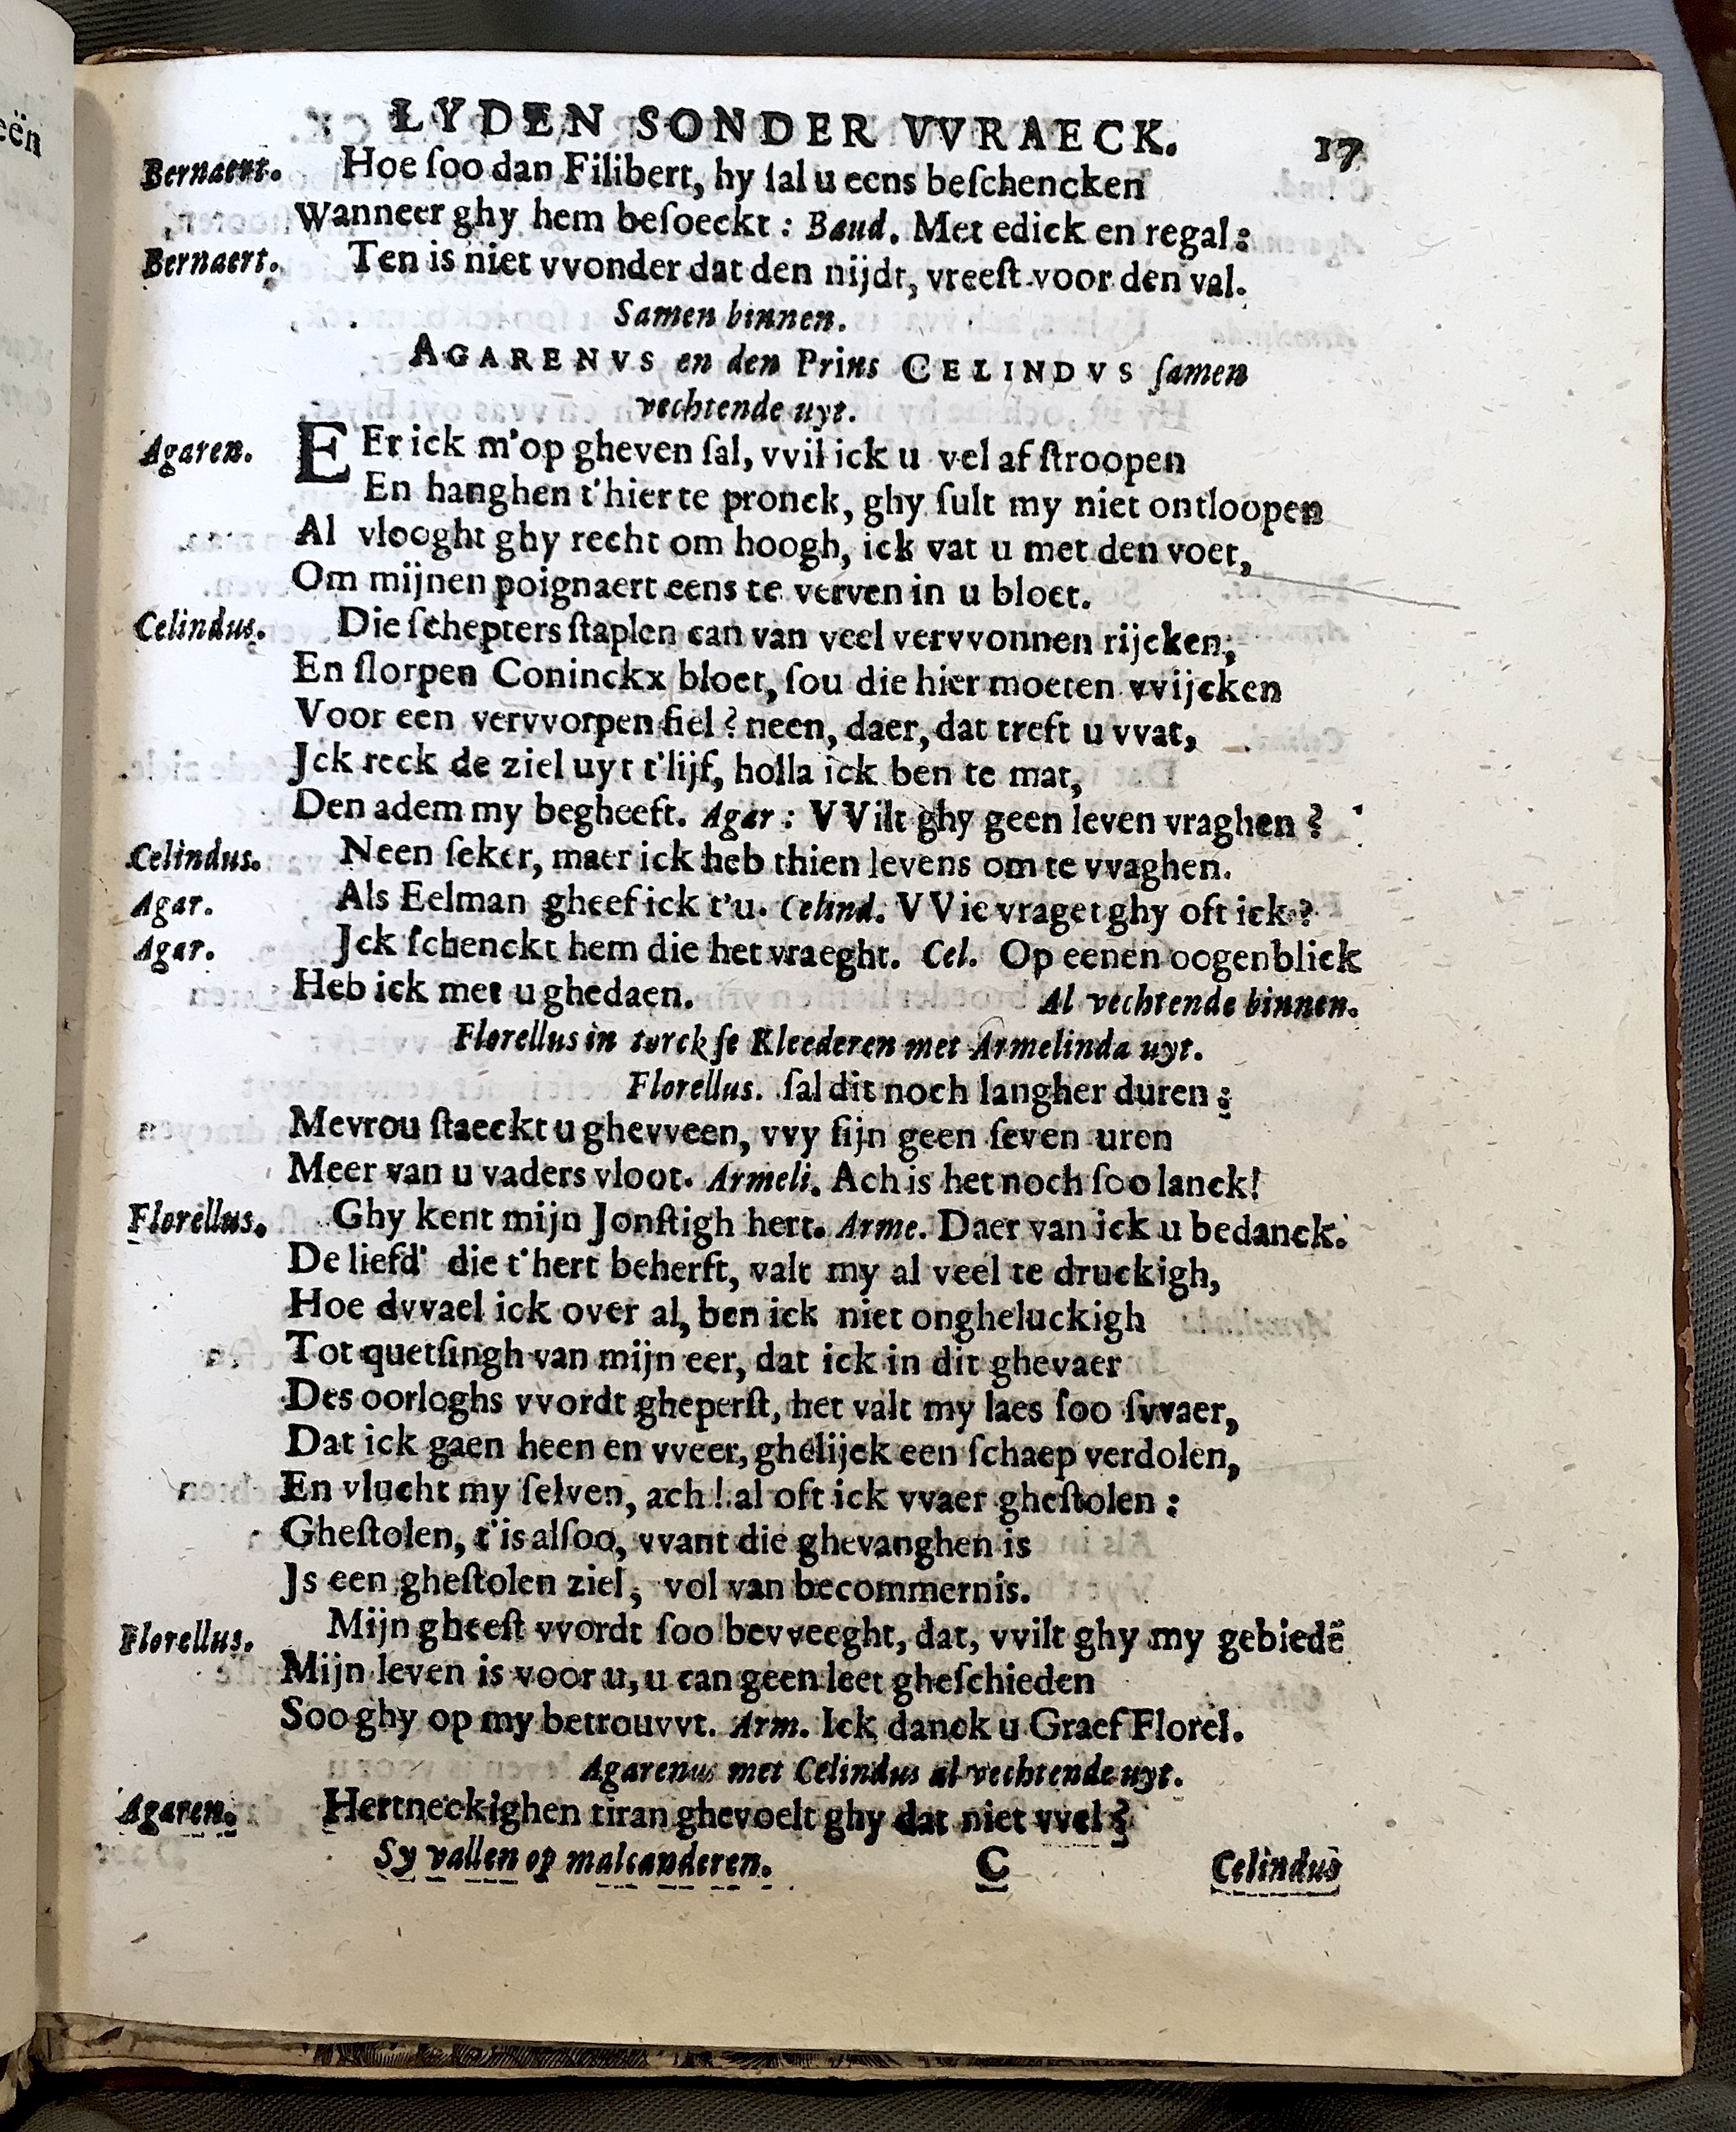 eën
LYDEN SONDER VVRAECK. 17
Bernaert. Hoe ſoo dan Filibert, hy ſal u eens beſchencken
Wanneer ghy hem beſoeckt : Baud. Met edick en regal :
Bernaert. Ten is niet vvonder dat den nijdt, vreeſt voor den val.
Samen binnen.
AGARENVS en den Prins CELINDVS ſamen
vechtende uyt.
Agaren. EEr ick m'op gheven ſal, vvil ick u vel af ſtroopen
En hanghen t'hier te pronck, ghy ſult my niet ontloopen
Al vlooght ghy recht om hoogh, ick vat u met den voet,
Om mijnen poignaert eens te verven in u bloet.
Celindus. Die ſchepters ſtaplen can van veel vervvonnen rijcken;
En ſlorpen Coninckx bloet, ſou die hier moeten vvijcken
Voor een vervvorpen fiel ? neen, daer, dat treft u vvat,
Jck reck de ziel uyt t'lijf, holla ick ben te mat,
Den adem my begheeft. Agar : VVilt ghy geen leven vraghen ?
Celindus. Neen ſeker, maer ick heb thien levens om te vvaghen.
Agar. Als Eelman gheef ick t'u. Celind. VVie vraget ghy oft ick ?
Agar. Jck ſchenckt hem die het vraeght. Cel. Op eenen oogenblick
Heb ick met u ghedaen. Al vechtende binnen.
Florellus in torckſe Kleederen met Armelinda uyt.
Florellus. ſal dit noch langher duren ;
Mevrou ſtaeckt u ghevveen, vvy ſijn geen ſeven uren
Meer van u vaders vloot. Armeli. Ach is het noch ſoo lanck!
Florellus. Ghy kent mijn Jonſtigh hert. Arme. Daer van ick u bedanck.
De liefd' die t'hert beherſt, valt my al veel te druckigh,
Hoe dvvael ick over al, ben ick niet ongheluckigh
Tot quetſingh van mijn eer, dat ick in dit ghevaer
Des oorloghs vvordt gheperſt, het valt my laes ſoo ſvvaer,
Dat ick gaen heen en vveer, ghelijck een ſchaep verdolen,
En vlucht my ſelven, ach ! al oft ick vvaer gheſtolen :
Gheſtolen, t'is alſoo, vvant die ghevanghen is
Js een gheſtolen ziel, vol van becommernis.
Florellus. Mijn gheeſt vvordt ſoo bevveeght, dat, vvilt ghy my gebiedē
Mijn leven is voor u, u can geen leet gheſchieden
Soo ghy op my betrouvvt. Arm. Ick danck u Graef Florel.
Agarenus met Celindus al vechtende uyt.
Agaren. Hertneckighen tiran ghevoelt ghy dat niet vvel ?
Sy vallen op malcanderen. C Celindus